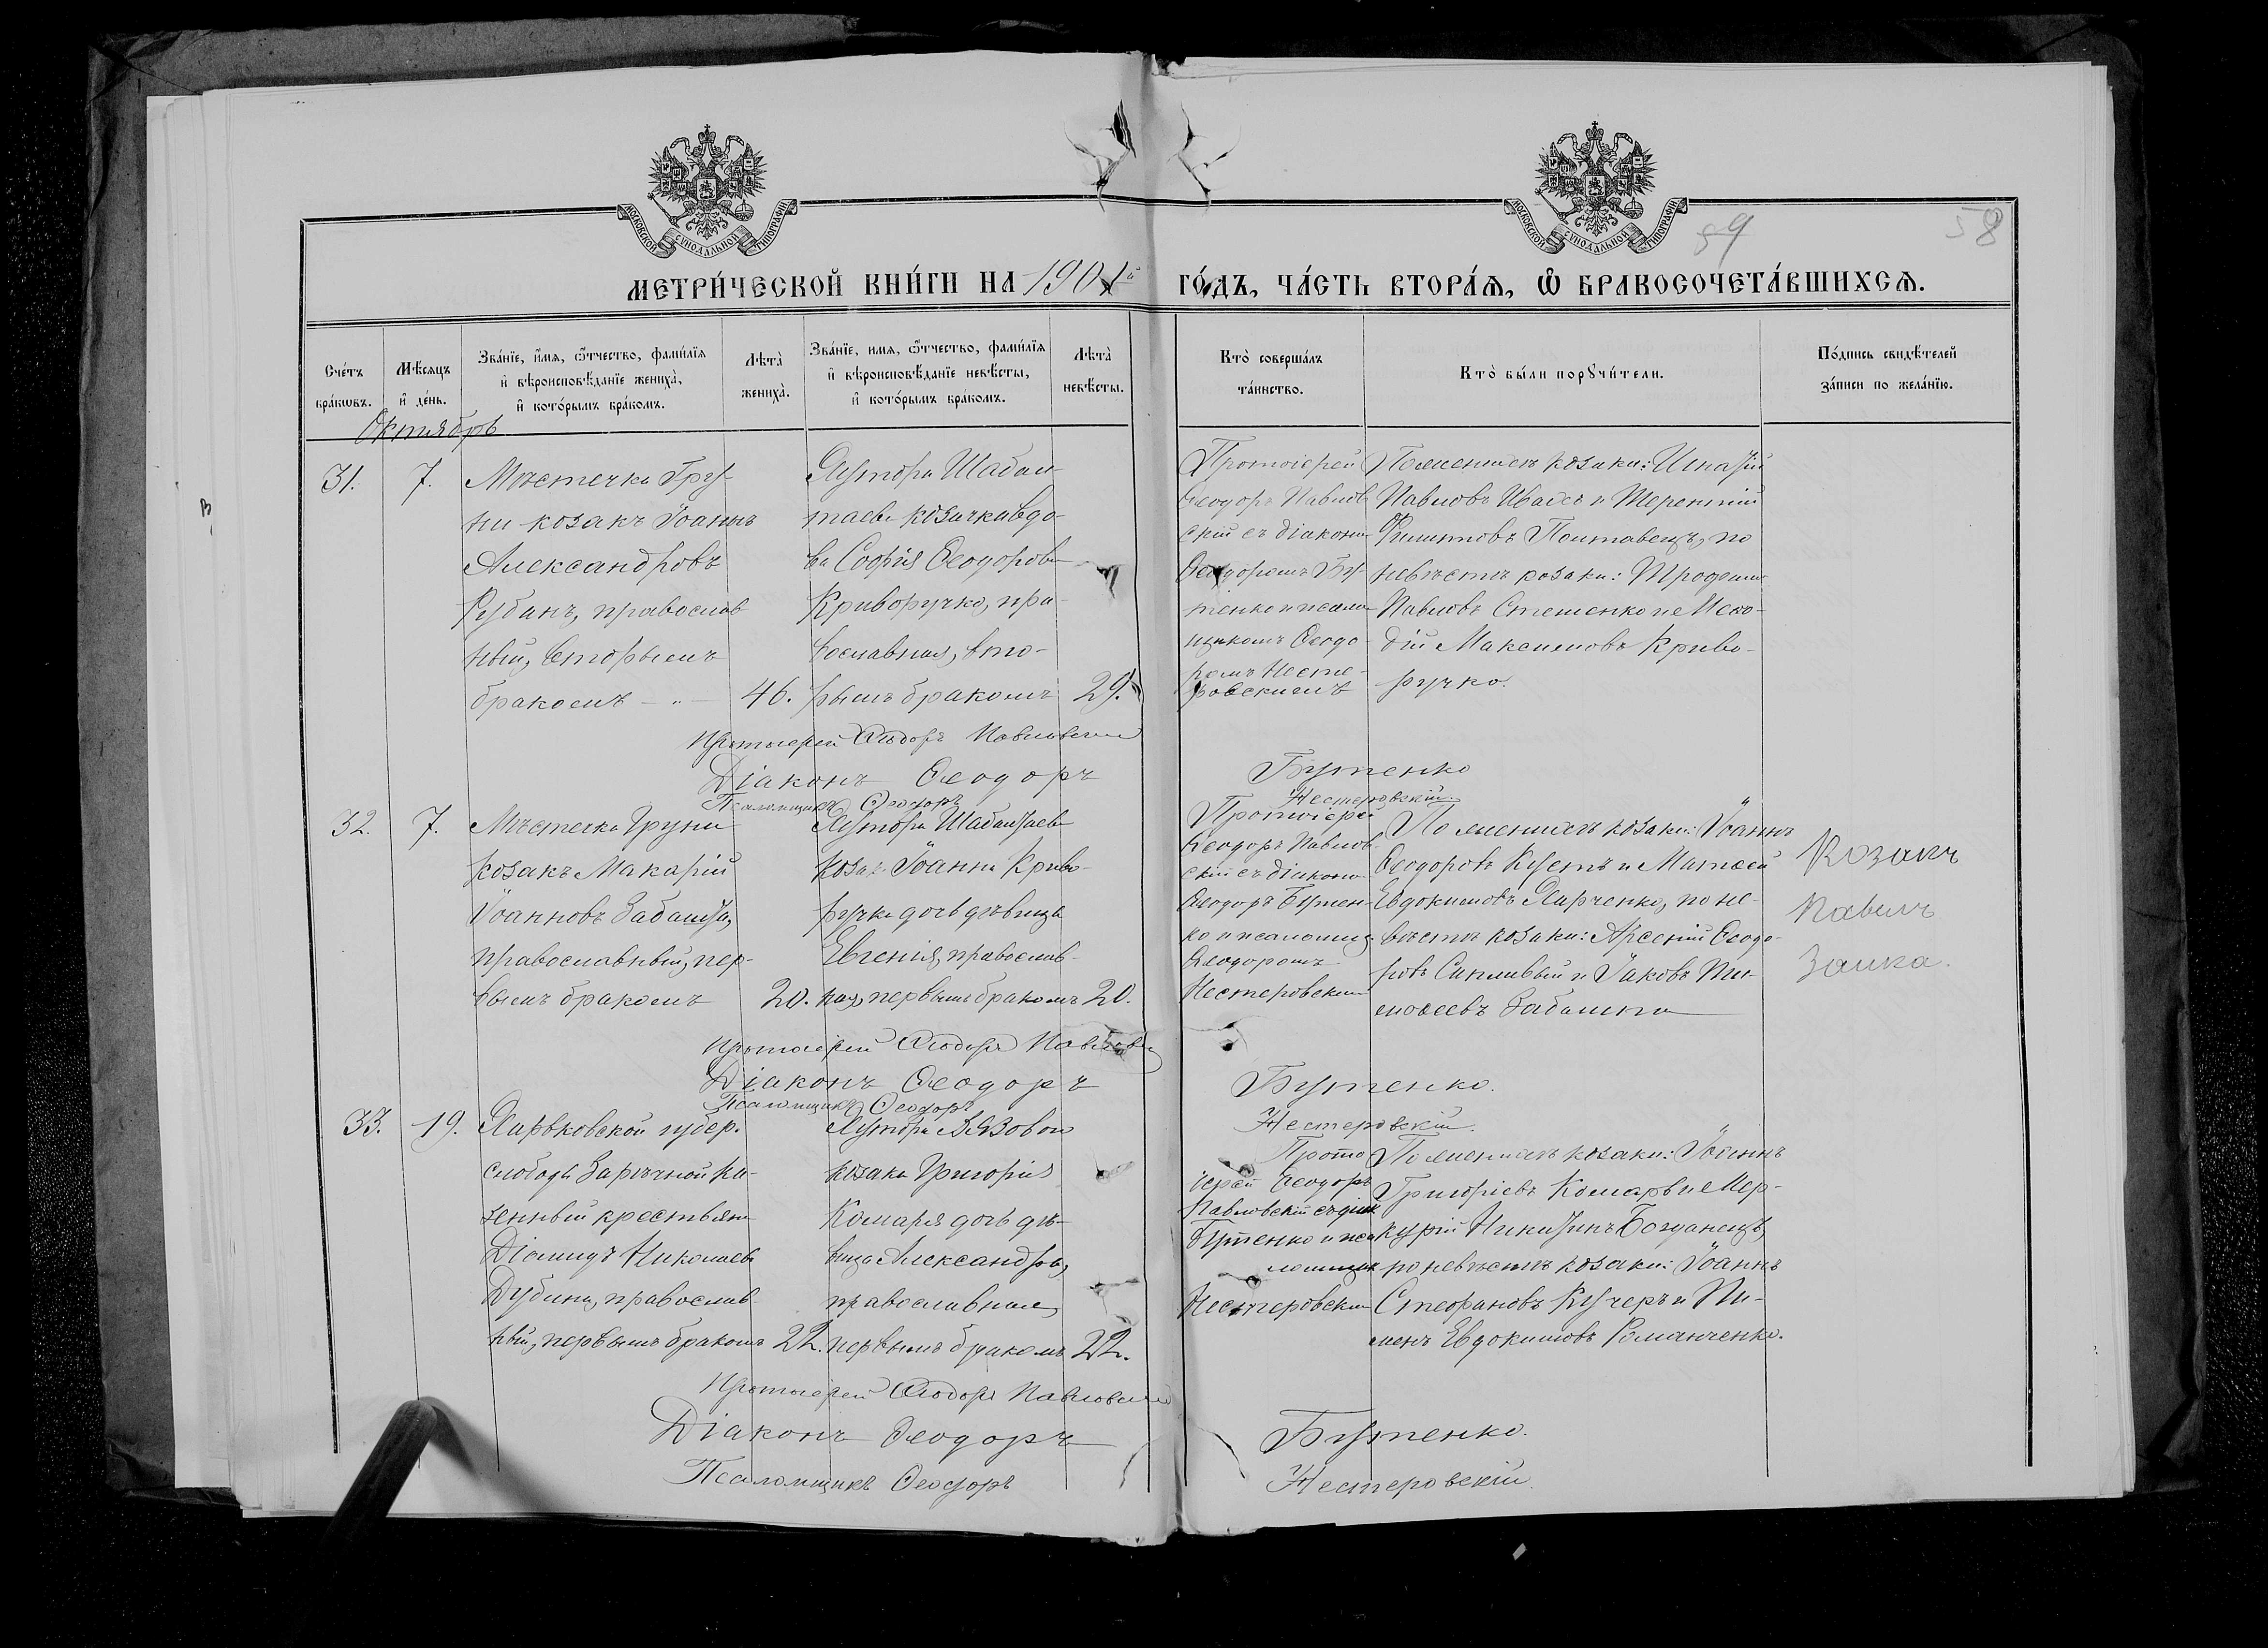 МОСКОВСКОЙ СѴНОДАЛЬНОЙ ТИПОГРАФІИ
МОСКОВСКОЙ СѴНОДАЛЬНОЙ ТИПОГРАФІИ
59
58
МЕТРИ́ЧЕСКОЙ КНИ́ГИ НА 1901й ГО́ДЪ, ЧА́СТЬ ВТОРА́Ѧ, Ѽ БРАКОСОЧЕТА́ВШИХСѦ.
Сче́тъ бра́кωвъ.
Мѣ́сяцъ и҆ де́нь.
Зва́нїе, и҆́мѧ, ѻ҆́тчество, фами́лїѧ
и҆ вѣроисповѣ́данїе жениха̀,
и҆ кото́рымъ бра́комъ.
Лѣта̀ жениха̀.
Зва́нїе, имѧ, ѻ҆́тчество, фами́лїѧ
и҆ вѣроисповѣ́данїе невѣ́сты,
и҆ кото́рымъ бра́комъ.
Лѣта̀ невѣ́сты.
Кто̀ соверша́лъ
та́инство.
Кто̀ бы́ли порꙋчи́тели.
По́дпись свидѣ́телей
за́писи по жела́нїю.
Октябрь
31.
7.
Мѣстечка Гру-
ни козакъ Іоаннъ
Александровъ
Рубанъ, православ
ный, вторымъ
бракомъ
46.
Хутора Шабал-
таева козачка вдо-
ва Софія Ѳеодорова
Криворучко, пра-
вославная, вто-
рымъ бракомъ
29.
Протоіерей
Ѳеодоръ Павлов
скій съ діакономъ
Ѳеодоромъ Бу-
тенко и псалом-
щикомъ Ѳеодо-
ромъ Несте-
ровскимъ
По женихѣ козаки: Игнатій
Павловъ Ивахъ и Терентій
Филиповъ Полтавецъ, по
невѣстѣ козаки: Трофимъ
Павловъ Стешенко и Меѳо-
дій Максимовъ Криво-
ручко.
Протоіерей Ѳеодоръ Павловскій
Діаконъ Ѳеодоръ Бутенко
Псаломщикъ Ѳеодоръ Нестеровскій.
32.
7.
Мѣстечка Груни
козакъ Макарій
Іоанновъ Забашта,
православный, пер-
вымъ бракомъ
20.
Хутора Шабалтаева
козака Іоанна Криво-
ручка дочь дѣвица
Евгенія, православ-
ная, первымъ бракомъ
20.
Протоіерей
Ѳеодоръ Павлов-
скій съ діакономъ
Ѳеодоръ Бутен-
ко и псаломщ.
Ѳеодоромъ
Нестеровскимъ
По женихѣ козаки: Іоаннъ
Ѳеодоровъ Кустъ и Матѳей
Евдокимовъ Харченко, по не-
вѣстѣ козаки: Арсеній Ѳеодо-
ровъ Сипливый и Іаковъ Ти-
моѳеевъ Забашта
Козакъ
Павелъ
Заика.
Протоіерей Ѳеодоръ Павловскій
Діаконъ Ѳеодоръ Бутенко.
Псаломщикъ Ѳеодоръ Нестеровскій.
33.
19.
Харьковской губер.
слободы Зарѣчной ка-
зенный крестьянин
Діомидъ Николаевъ
Дубина, православ-
ный, первымъ бракомъ
22.
Хутора Вязовой
козака Григорія
Комаря дочь дѣ-
вица Александра,
православная,
первымъ бракомъ
22.
Прото
іерей Ѳеодоръ
Павловскій съ діак.
Бутенко и пса
ломщик
Нестеровскимъ
По женихѣ козаки: Іоаннъ
Григоріевъ Комарь и Мер-
курій Никитинъ Богданецъ,
по невѣстѣ козаки: Іоаннъ
Стефановъ Кучеръ и Пи-
менъ Евдокимовъ Романченко.
Протоіерей Ѳеодоръ Павловскій
Діаконъ Ѳеодоръ Бутенко.
Псаломщикъ Ѳеодоръ Нестеровскій.